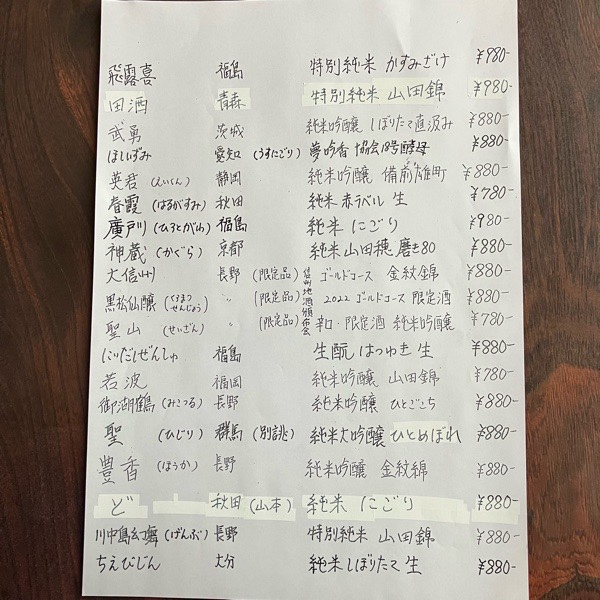 飛露喜 福島 特別純米 かすみざけ ¥980-
田酒 青森 特別純米 山田錦 ¥980-
武勇 茨城 純米吟醸 しぼりたて直汲み ¥880-
ほしいずみ 愛知 (うすにごり) 夢吟香 協会18号酵母 ¥880-
英君 (えいくん) 静岡 純米吟醸 備前雄町 ¥880-
春霞 (はるがすみ) 秋田 純米 赤ラベル 生 ¥780-
廣戸川 (ひろとがわ) 福島 純米 にごり ¥980-
神蔵 (かぐら) 京都 純米 山田穂 磨き80 ¥880-
大信州 長野 (限定品) 信州地酒頒布会 ゴールドコース 金紋錦 ¥880-
黒松仙醸 (くろまつせんじょう) 〃 (限定品) 2022 ゴールドコース 限定酒 ¥880-
聖山 (せいざん) 〃 (限定品) 辛口・限定酒 純米吟醸 ¥780-
にいだしぜんしゅ 福島 生酛 はつゆき 生 ¥880-
若波 福岡 純米吟醸 山田錦 ¥780-
御湖鶴 (みこつる) 長野 純米吟醸 ひとごこち ¥880-
聖 (ひじり) 群馬 (別誂) 純米大吟醸 ひとめぼれ ¥880-
豊香 (ほうか) 長野 純米吟醸 金紋綿 ¥880-
ど 秋田 (山本) 純米 にごり ¥880-
川中島幻舞 (げんぶ) 長野 特別純米 山田錦 ¥880-
ちえびじん 大分 純米しぼりたて 生 ¥880-